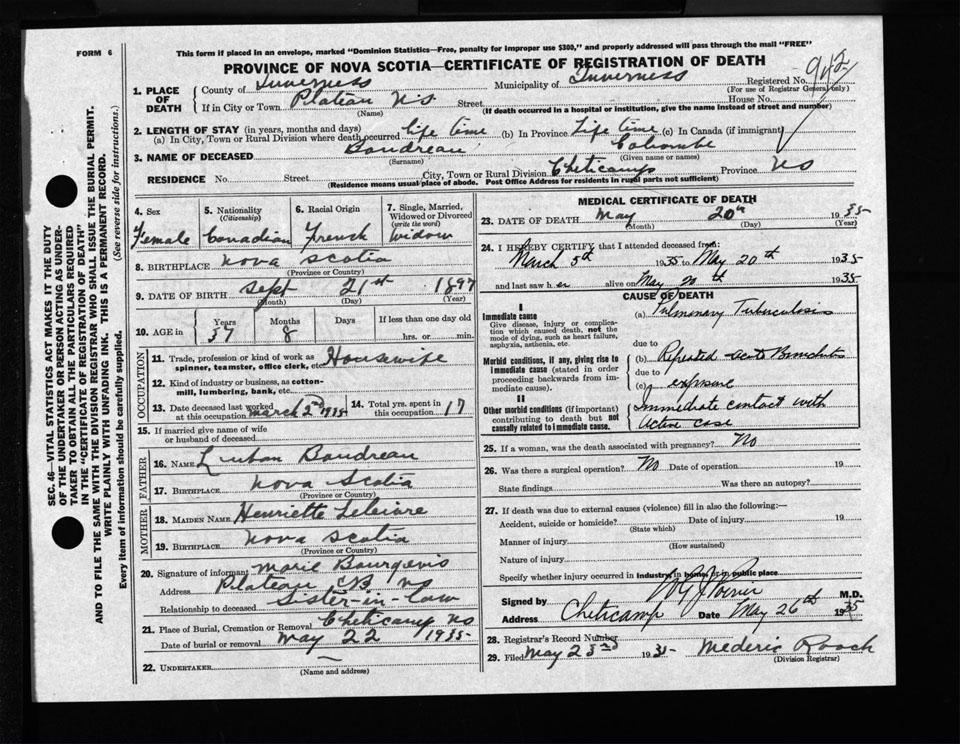 FORM 6
This form if placed in an envelope, marked "Dominion Statistics—Free, penalty for improper use $300," and properly addressed will pass through the mail "FREE"
PROVINCE OF NOVA SCOTIA—CERTIFICATE OF REGISTRATION OF DEATH
1. PLACE OF DEATH County of Inverness Municipality of Inverness Registered No. 942
(For use of Registrar General only)
If in City or Town Plateau NS Street House No.
(Name) (If death occurred in a hospital or institution, give the name instead of street and number)
2. LENGTH OF STAY (in years, months and days)
(a) In City, Town or Rural Division where death occurred life time (b) In Province Life time (c) In Canada (if immigrant)
3. NAME OF DECEASED Boudreau Colombe
(Surname) (Given name or names)
RESIDENCE No. Street City, Town or Rural Division Cheticamp Province NS
(Residence means usual place of abode. Post Office Address for residents in rural parts not sufficient)
4. Sex Female
5. Nationality (Citizenship) Canadian
6. Racial Origin French
7. Single, Married, Widowed or Divorced (write the word) Widow
8. BIRTHPLACE Nova Scotia
(Province or Country)
9. DATE OF BIRTH Sept 21st 1897
(Month) (Day) (Year)
10. AGE in Years Months Days If less than one day old
37 8 hrs. or min.
OCCUPATION
11. Trade, profession or kind of work as spinner, teamster, office clerk, etc. Housewife
12. Kind of industry or business, as cotton-mill, lumbering, bank, etc.
13. Date deceased last worked at this occupation March 2nd 1935
14. Total yrs. spent in this occupation 17
15. If married give name of wife or husband of deceased
FATHER
16. NAME Boudreau
17. BIRTHPLACE Nova Scotia
(Province or Country)
MOTHER
18. MAIDEN NAME Henriette
19. BIRTHPLACE Nova Scotia
(Province or Country)
20. Signature of informant Marie Bourgeois
Address Plateau CB NS
Relationship to deceased Sister-in-law
21. Place of Burial, Cremation or Removal Cheticamp NS
Date of burial or removal May 22 1935
22. UNDERTAKER
(Name and address)
MEDICAL CERTIFICATE OF DEATH
23. DATE OF DEATH May 20th 1935
(Month) (Day) (Year)
24. I HEREBY CERTIFY that I attended deceased from:
March 5th 1935 to May 20th 1935
and last saw h er alive on May 20th 1935
CAUSE OF DEATH
I
Immediate cause
Give disease, injury or complication which caused death, not the mode of dying, such as heart failure, asphyxia, asthenia, etc.
(a) Pulmonary Tuberculosis
due to
Morbid conditions, if any, giving rise to immediate cause (stated in order proceeding backwards from immediate cause).
(b) Repeated acute Bronchitis
due to
(c) exposure
II
Other morbid conditions (if important) contributing to death but not causally related to immediate cause.
Immediate contact with
Active case
25. If a woman, was the death associated with pregnancy? No
26. Was there a surgical operation? No Date of operation 19
State findings Was there an autopsy?
27. If death was due to external causes (violence) fill in also the following:—
Accident, suicide or homicide? Date of injury 19
(State which)
Manner of injury
(How sustained)
Nature of injury
Specify whether injury occurred in industry, in home, in public place
Signed by M.D.
Address Cheticamp Date May 26th 1935
28. Registrar's Record Number
29. Filed May 23rd 1935 Mederic Roach
(Division Registrar)
SEC. 46—VITAL STATISTICS ACT MAKES IT THE DUTY
OF THE UNDERTAKER OR PERSON ACTING AS UNDER-
TAKER TO OBTAIN ALL THE PARTICULARS REQUIRED
IN THE "CERTIFICATE OF REGISTRATION OF DEATH"
AND TO FILE THE SAME WITH THE DIVISION REGISTRAR WHO SHALL ISSUE THE BURIAL PERMIT.
WRITE PLAINLY WITH UNFADING INK. THIS IS A PERMANENT RECORD.
Every item of information should be carefully supplied. (See reverse side for instructions.)